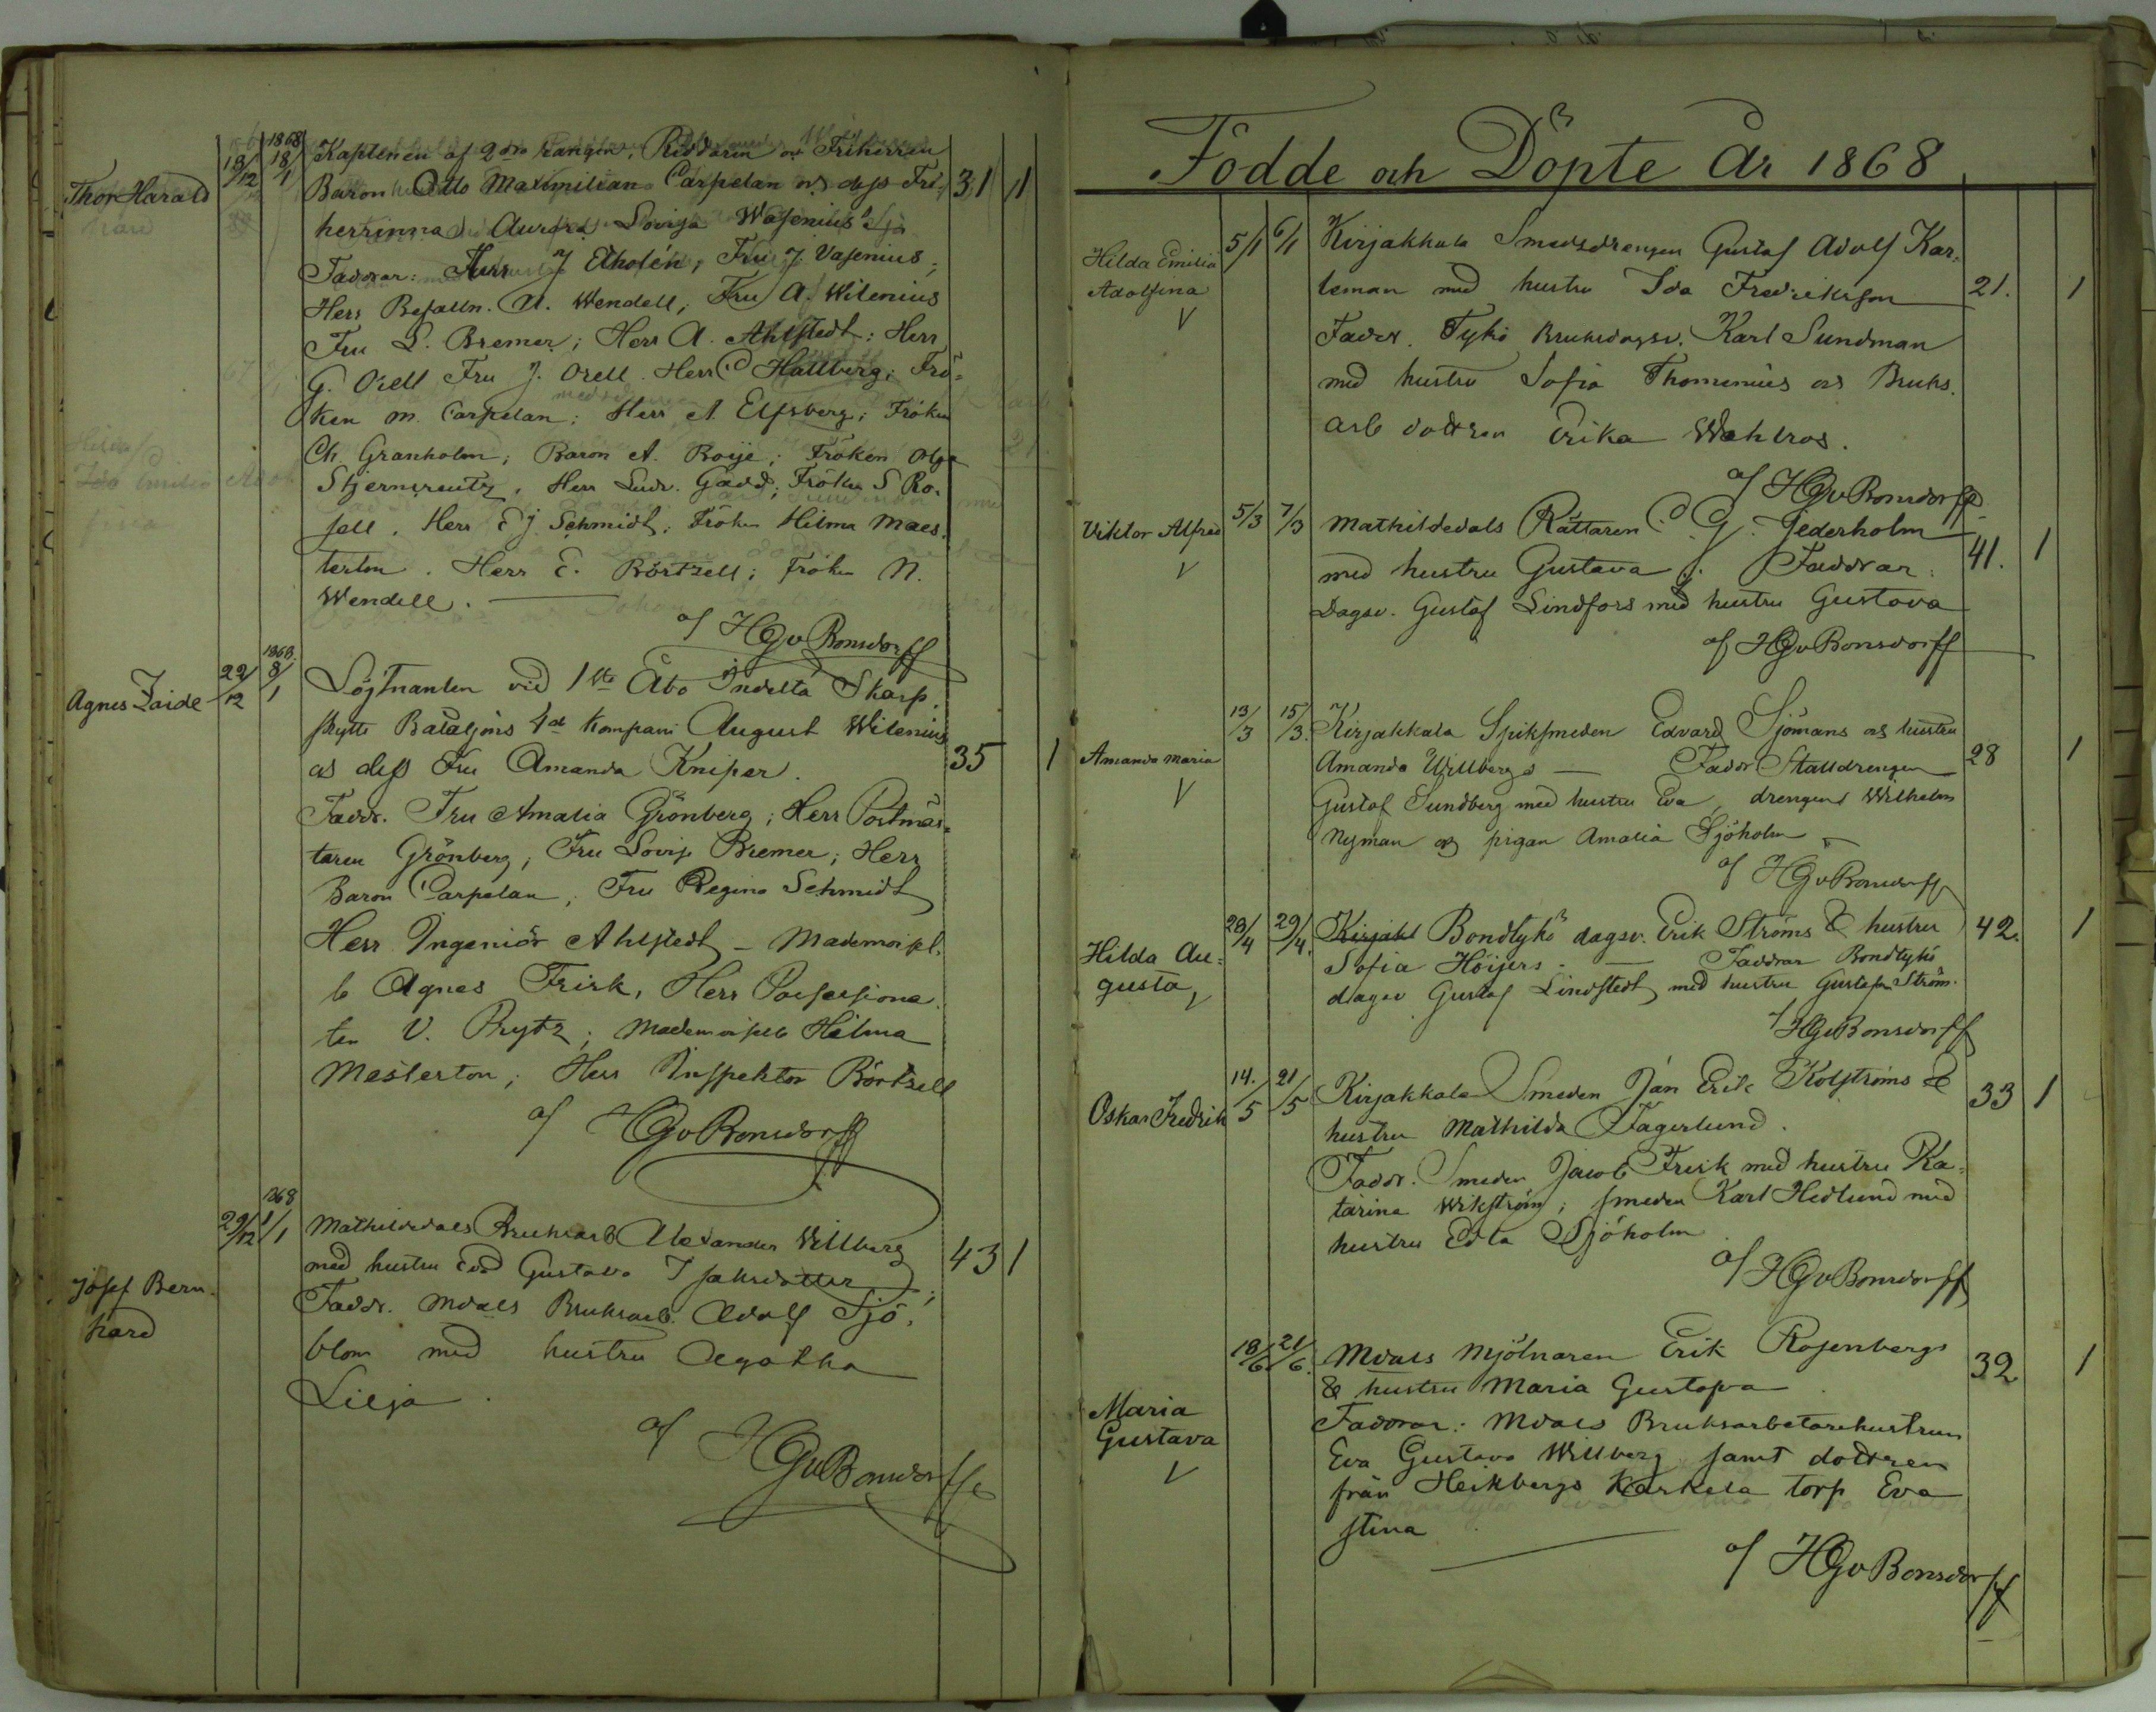 1868
Thor Harald 18/12 18/1 Kaptenen af 2dra rangen, Riddaren o. Friherren
Baron Otto Maximilian Carpelan o. dess Fri- 31 1
herrinna Aurora Lovisa Wasenius
Faddrar: Herr J Eholén, Fru J. Vasenius;
Herr Befalln. A. Wendell, Fru A. Wilenius
Fru L. Bremer; Herr A. Ahlstedt: Herr
G. Orell Fru J. Orell. Herr C Hallberg; Frö-
ken M. Carpelan: Herr A Elfsberg; Fröken
Ch. Granholm; Baron A. Boije; Fröken Olga
Stjerncreutz, Herr Ludv. Gadd; Fröken S Ro-
sell. Herr E J. Schmidt; Fröken Hilma Maes-
terton. Herr E. Börtzell; Fröken N.
Wendell.
af HGvBonsdorff
1868
Agnes Zaide 22/12 8/1 Löjtnanten vid 1sta Åbo Indelta Skarp-
skytte Bataljons 4de Kompani August Wilenius
o dess Fru Amanda Kniper. 35 1
Faddr. Fru Amalia Grönberg; Herr Postmäs-
taren Grönberg; Fru Lovis Bremer; Herr
Baron Carpelan, Fru Regina Schmidt
Herr Ingeniör Ahlstedt - Mademoisel-
le Agnes Frisk, Herr Possessiona-
ten V. Prytz; Mademoiselle Hilma
Mesterton; Herr Inspektor Börtzell
af HGvBonsdorff
1868
Josef Bern-
hard
29/12 1/1 Mathildedals Bruksarb Alexander Willberg
med hustru Eva Gustava Isaksdotter 43 1
Faddr. Mdals Bruksarb. Adolf Sjö-
blom med hustru Agatha
Lilja.
af HGvBonsdorff
Födde och Döpte År 1868
Hilda Emilia
Adolfina
5/1 6/1 Kirjakkala Smedsdrengen Gustaf Adolf Kar-
leman med hustru Ida Fredriksson 21. 1
Faddr. Tykö Bruksdagsv. Karl Sundman
med hustru Sofia Thomenius o Bruks-
arb dottren Erika Wahlros.
af HGvBonsdorff
Viktor Alfred 5/3 7/3 Mathildedals Rättaren C. G. Jederholm
med hustru Gustava J. Faddrar: 41. 1
Dagsv. Gustaf Lindfors med hustru Gustava
af HGvBonsdorff
Amanda Maria 13/3 15/3. Kirjakkala Spiksmeden Edvard Sjömans o hustru
Amanda Willbergs — Faddr Stalldrengen 28 1
Gustaf Sundberg med hustru Eva, drengen Wilhelm
Nyman o pigan Amalia Sjöholm
af HGvBonsdorff
Hilda Au-
gusta
28/4 29/4. Kirjakl Bondtykö dagsv. Erik Ströms & hustru 42. 1
Sofia Höijers. — Faddrar Bondtykö
dagsv Gustaf Lindstedt med hustru Gustafva Ström.
af HGvBonsdorff
Oskar Fredrik 14./5 21/5 Kirjakkala Smeden Jan Erik Kolströms & 33 1
hustru Mathilda Fagerlund.
Faddr. Smeden Jacob Frisk med hustru Ka-
tarina Wikström; smeden Karl Hedlund med
hustru Edla Sjöholm
af HGvBonsdorff
Maria
Gustava
18/6 21/6. Mdals Mjölnaren Erik Rosenbergs 32 1
& hustru Maria Gustafva
Faddrar: Mdals Bruksarbetarehustrun
Eva Gustava Willberg samt dottren
från Heikbergs Karkela torp Eva
Stina
af HGvBonsdorff